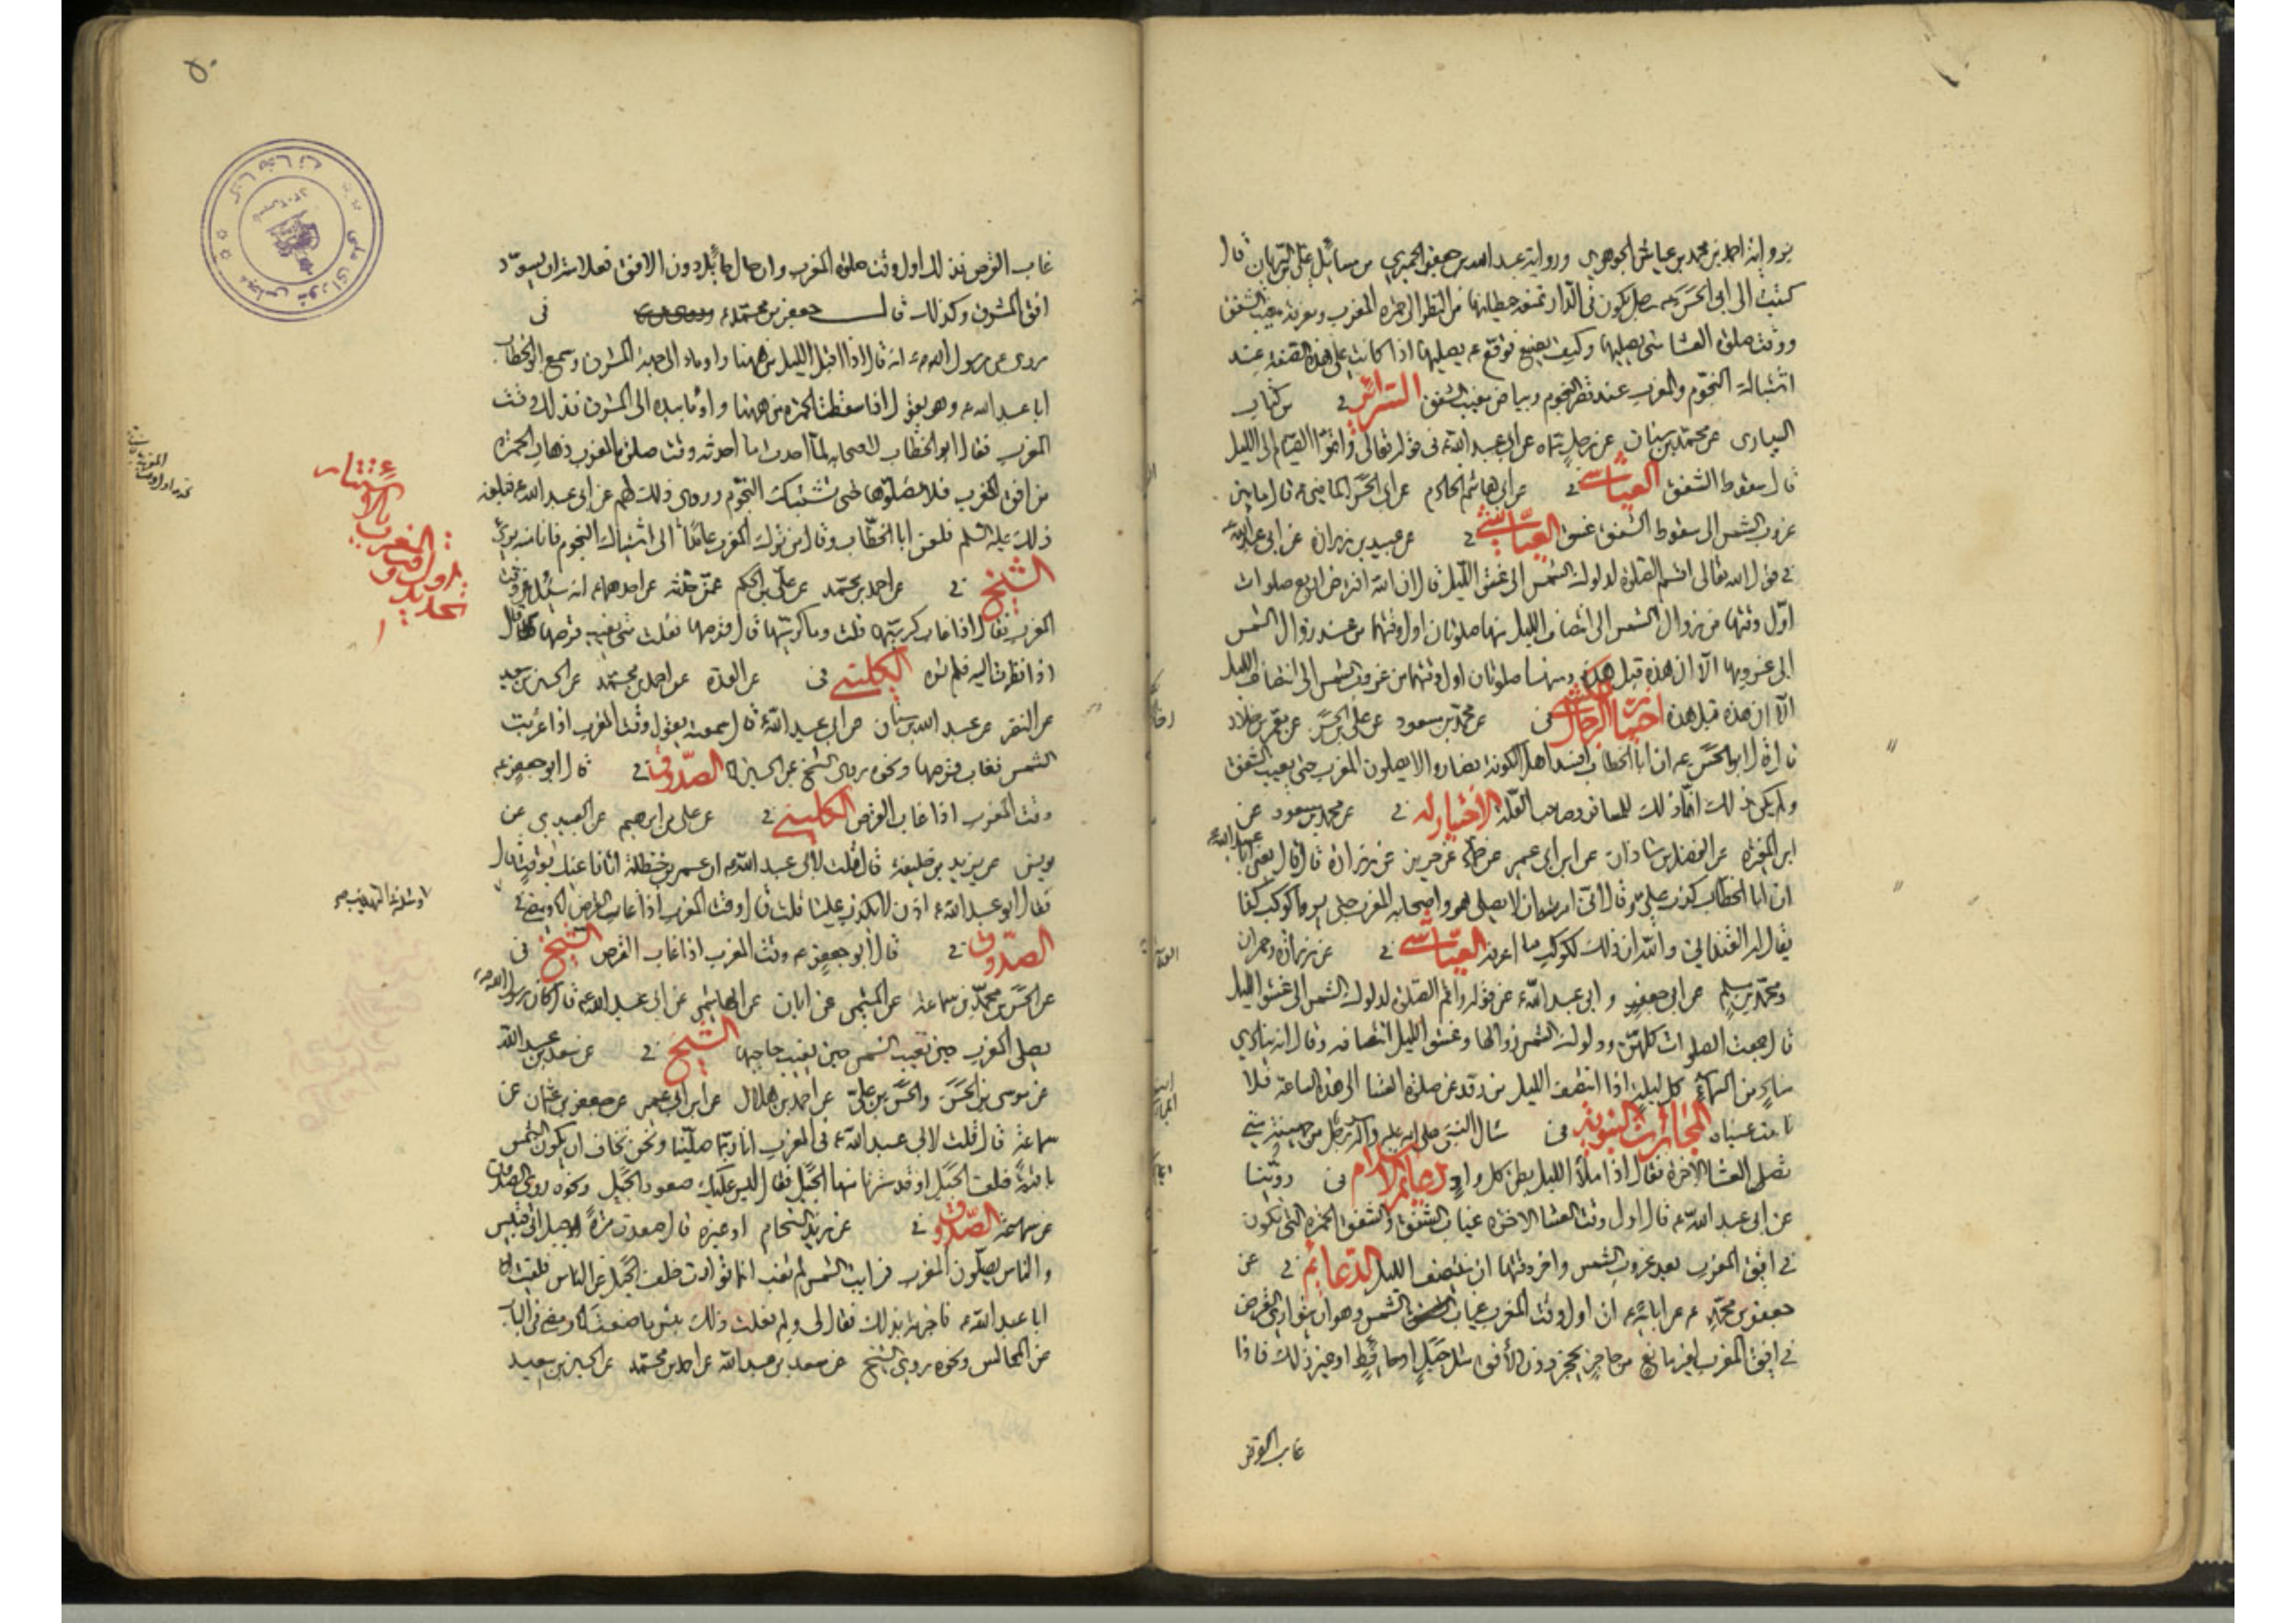 برواية احمد بن محمد بن عياش الجوهري ورواية عبد الله بن جعفر الحميري من مسائل علي الريان قال
كتبت الى ابي الحسن ع رجل يكون في الدار تمنعه حيطانها من النظر الى حمرة المغرب ومعرفة مغيب الشفق
ووقت صلوة العشا متى يصليها وكيف يصنع فوقع ع يصليها اذا كانت على هذه الصفة عند
اشتباك النجوم والمغرب عند قصر النجوم وبياض مغيب الشفق السرائر في من كتاب
السياري عن محمد بن سنان عن رجل سماه عن ابي عبد الله ع في قوله تعالى واتموا الصيام الى الليل
قال سقوط الشفق العياشي في عن ابي هاشم الخادم عن ابي الحسن الماضي ع قال ما بين
غروب الشمس الى سقوط الشفق غسق العياشي في عن عبيد بن زرارة عن ابي عبد الله ع
في قول الله تعالى اقم الصلوة لدلوك الشمس الى غسق الليل قال ان الله افترض اربع صلوات
اول وقتها من زوال الشمس الى انتصاف الليل منها صلوتان اول وقتهما من عند زوال الشمس
الى غروبها الا ان هذه قبل هذه ومنها صلوتان اول وقتهما من غروب الشمس الى انتصاف الليل
الا ان هذه قبل هذه اختيار الرجال في عن محمد بن مسعود عن علي بن الحسن عن معمر بن خلاد
قال قال ابو الحسن ع ان ابا الخطاب افسد اهل الكوفة فصاروا لا يصلون المغرب حتى يغيب الشفق
ولم يكن ذلك انما ذلك للمسافر وصاحب العلة الاختيار له في عن محمد بن مسعود عن
ابن المغيرة عن الفضل بن شاذان عن ابن ابي عمير عن حماد عن حريز عن زرارة قال قال يعني ابا عبد الله ع
ان ابا الخطاب كذب علي وقال اني امرته ان لا يصلي هو واصحابه المغرب حتى يروا كوكب كذا
يقال له القنداني والله ان ذلك لكوكب ما اعرفه العياشي في عن زرارة وحمران
ومحمد بن مسلم عن ابي جعفر و ابي عبد الله ع عن قوله واقم الصلوة لدلوك الشمس الى غسق الليل
قال جمعت الصلوات كلهن ودلوك الشمس زوالها وغسق الليل انتصافه وقال انه ينادي
مناد من السماء كل ليلة اذا انتصف الليل من رقد عن صلوة العشا الى هذه الساعة فلا
نامت عيناه المجازات النبوية في سال النبي صلى الله عليه وآله رجل من جهينة متى
نصلي العشا الاخرة فقال اذا ملأ الليل بطن كل واد دعائم الاسلام في روينا
عن ابي عبد الله ع قال اول وقت العشا الاخرة غياب الشفق والشفق الحمرة التي تكون
في افق المغرب بعد غروب الشمس واخر وقتها ان ينتصف الليل الدعائم في عن
جعفر بن محمد ع عن ابائه ع ان اول وقت المغرب غياب الشمس وهو ان يتوارى القرص
في افق المغرب لغير مانع من حاجز يحجز دون الافق مثل جبل او حائط او غير ذلك فاذا
غاب القرص
٥٠
غاب القرص فذلك اول وقت صلوة المغرب وان حال حائل دون الافق فعلامته ان يسود
افق المشرق وكذلك قال جعفر بن محمد ع في
روي عن رسول الله ص انه قال اذا اقبل الليل من ههنا واوماء الى جهة المشرق وسمع ابو الخطاب
ابا عبد الله ع وهو يقول اذا سقطت الحمرة من ههنا واومأ بيده الى المشرق فذلك وقت
المغرب فقال ابو الخطاب لاصحابه لما احدث ما احدثه وقت صلوة المغرب ذهاب الحمرة
من افق المغرب فلا تصلوها حتى تشتبك النجوم وروى ذلك لهم عن ابي عبد الله ع فبلغه
ذلك عليه السلم فلعن ابا الخطاب وقال من ترك المغرب عامدا الى اشتباك النجوم فانا منه بريء
الشيخ في عن احمد بن محمد عن علي بن الحكم عمن حدثه عن احدهما ع انه سئل عن وقت
المغرب فقال اذا غاب كرسيها قلت وما كرسيها قال قرصها فقلت متى يغيب قرصها قال
اذا نظرت اليه فلم تره الكليني في عن العدة عن احمد بن محمد عن الحسين بن سعيد
عن النضر عن عبد الله بن سنان عن ابي عبد الله ع قال سمعته يقول وقت المغرب اذا غربت
الشمس فغاب قرصها ونحوه روى الشيخ عن الحسين الصدوق في قال ابو جعفر ع
وقت المغرب اذا غاب القرص الكليني في عن علي بن ابرهيم عن العبيدي عن
يونس عن يزيد بن خليفة قال قلت لابي عبد الله ع ان عمر بن حنظلة اتانا عنك بوقت قال
فقال ابو عبد الله ع اذن لا يكذب علينا قلت قال وقت المغرب اذا غاب القرص
الصدوق في قال ابو جعفر ع وقت المغرب اذا غاب القرص الشيخ في
عن الحسن بن محمد بن سماعة عن الميثمي عن ابان عن الهاشمي عن ابي عبد الله ع قال كان رسول الله ص
يصلي المغرب حين تغيب الشمس حين يغيب حاجبها الشيخ في عن سعد بن عبد الله
عن موسى بن الحسن والحسن بن علي عن احمد بن هلال عن ابن ابي عمير عن جعفر بن عثمان عن
سماعة قال قلت لابي عبد الله ع في المغرب انا ربما صلينا ونحن نخاف ان يكون الشمس
باقية خلف الجبل او قد سترنا منها الجبل فقال ليس عليك صعود الجبل ونحوه روى الصدوق
عن سماعة الصدوق في عن زيد الشحام او غيره قال صعدت مرة جبل ابي قبيس
والناس يصلون المغرب فرايت الشمس لم تغب انما توارت خلف الجبل عن الناس فلقيت
ابا عبد الله ع فاخبرته بذلك فقال لي ولم فعلت ذلك بئس ما صنعت
من المجالس ونحوه روى الشيخ عن سعد بن عبد الله عن احمد بن محمد عن الحسين بن سعيد
تحديد اول وقت المغرب بالاستتار